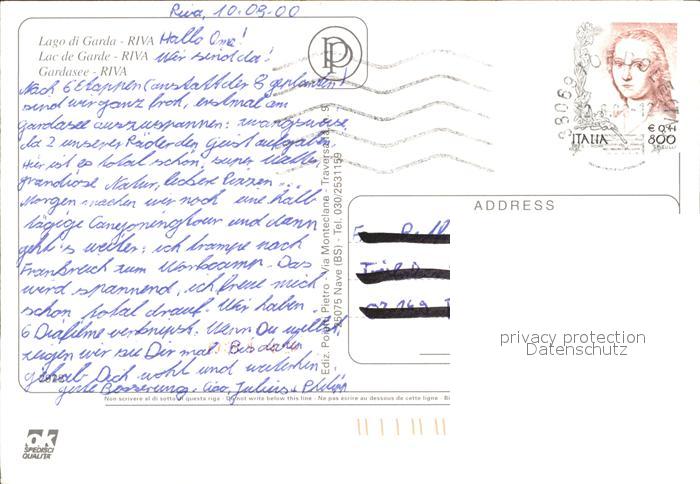 Riva, 10.09.00
Lago di Garda - RIVA
Lac de Garde - RIVA
Gardasee - RIVA
Hallo Oma!
Wir sind da!
Nach 6 Etappen (anstatt der 8 geplanten)
sind wir ganz froh, erstmal am
Gardasee auszuspannen: zwangsweise,
da 2 unserer Räder den Geist aufgaben.
Hier ist es total schön, super Wetter,
grandiose Natur, leckere Pizzen...
Morgen machen wir noch eine halb
tägige Canyoningtour und dann
geht's weiter: ich trampe nach
Frankreich zum Workcamp. Das
wird spannend, ich freue mich
schon total drauf. Wir haben
6 Diafilme verknipst. Wenn Du willst,
zeigen wir sie Dir mal. Bis dahin
gehab Dich wohl und weiterhin
gute Besserung. Ciao, Julius + Philipp
Ediz. Poletti Pietro - Via Monteclana - Traversa
25075 Nave (BS) - Tel. 030/2531159
P
ITALIA
€ 0,41
800
ADDRESS
privacy protection
Datenschutz
Non scrivere al di sotto di questa riga - Do not write below this line - Ne pas écrire au dessous de cette ligne - Bi
ok
SPEDISCI
QUALITA'